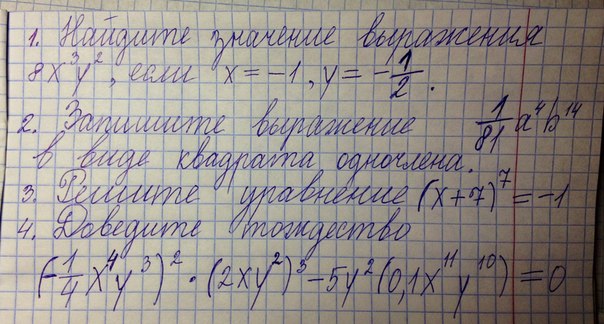 1. Найдите значение выражения
8x³y², если x = -1, y = -1/2.
2. Запишите выражение 1/81 a⁴b¹⁴
в виде квадрата одночлена.
3. Решите уравнение (x+7)⁷ = -1
4. Доведите тождество
(-1/4 x⁴y³)² · (2xy²)³ - 5y²(0,1x¹¹y¹⁰) = 0